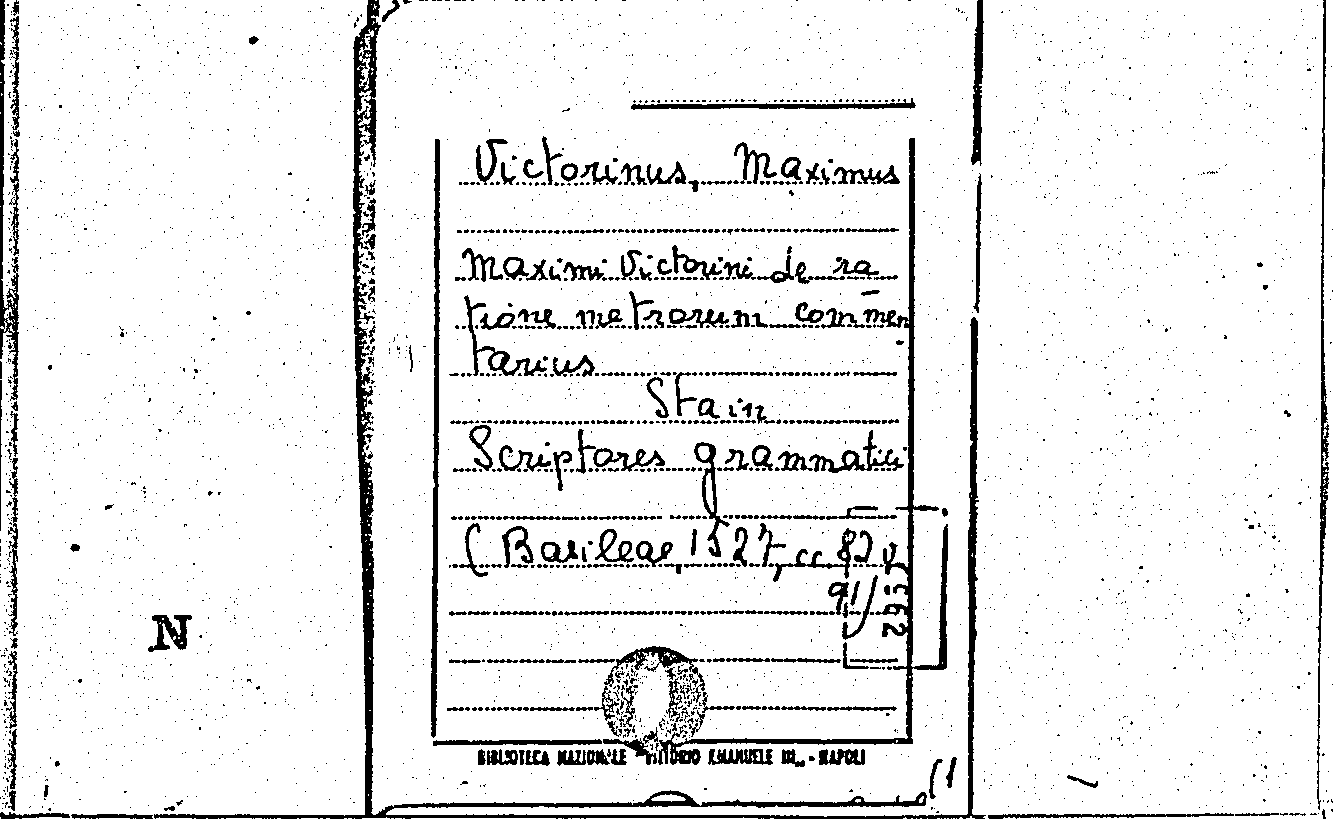 Victorinus, Maximus
Maximi Victorini de ra
tione metrorum com̄men
tarius
Stain
Scriptores grammatici
(Basileae, 1527, cc. 82 v
91)
N
BIBLIOTECA NAZIONALE VITTORIO EMANUELE III - NAPOLI